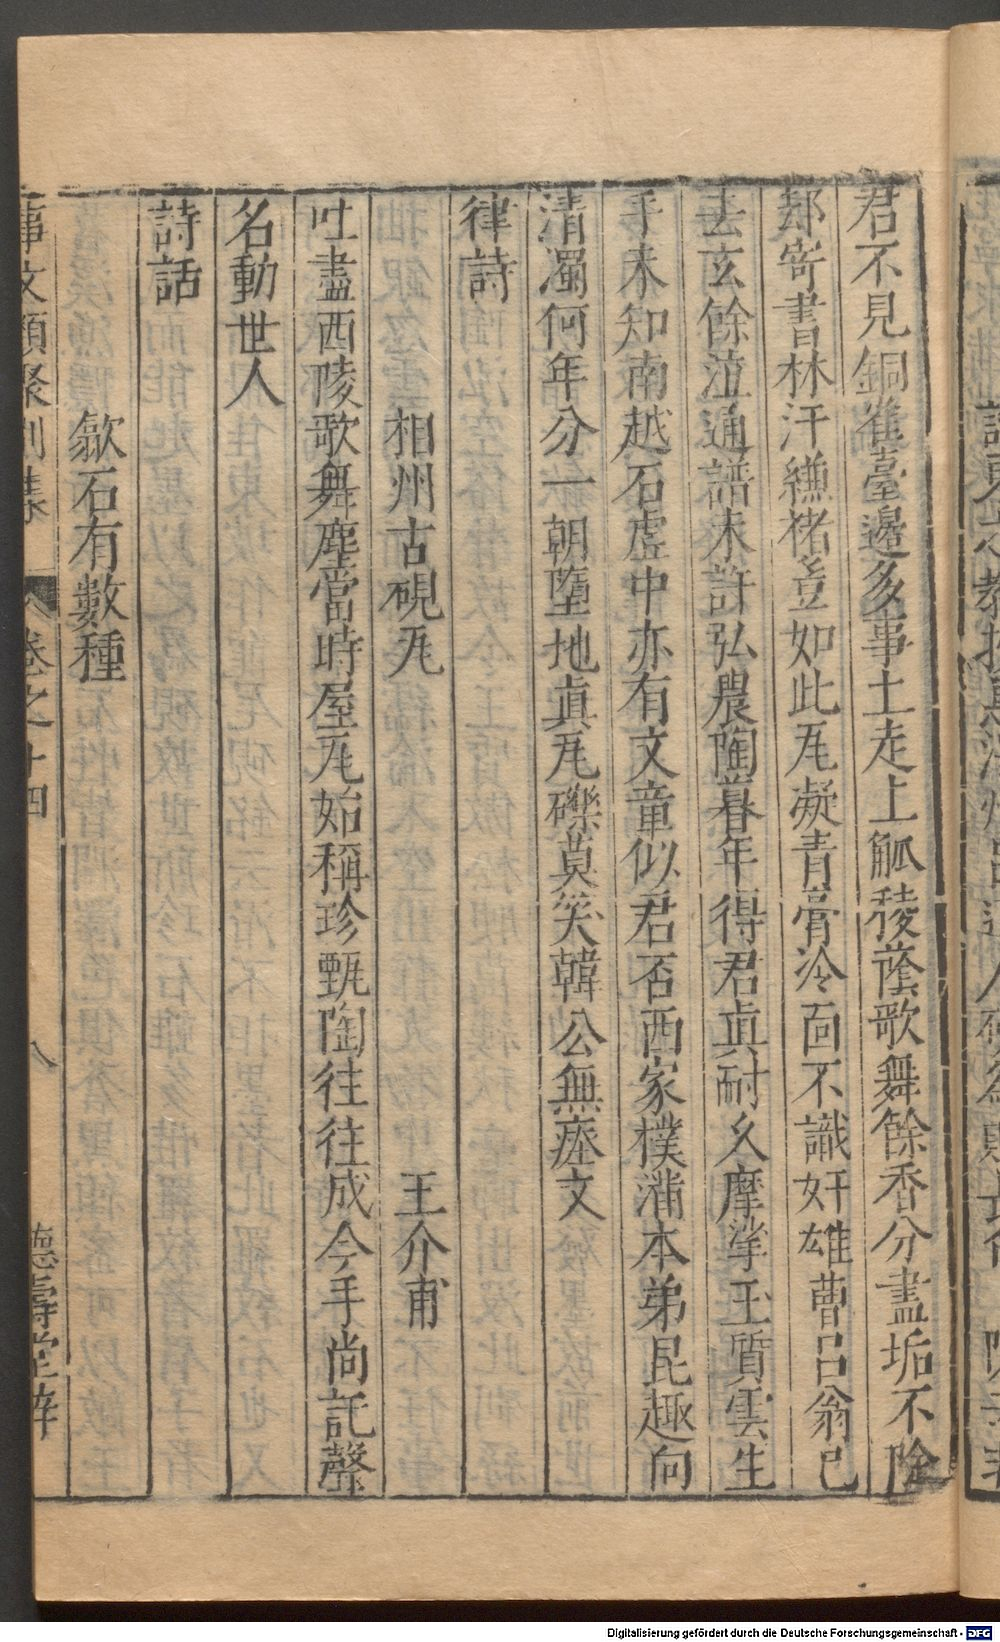 君不見銅雀臺邊多事土走上觚稜蔭歌舞餘香分盡垢不除
却寄書林汗縑楮豈如此瓦凝青膏冷面不識奸雄曹呂翁已
去玄餘泣通譜未許弘農陶暮年得君真耐久摩挲玉質雲生
手未知南越石虛中亦有文章似君否西家樸滿本弟昆趣向
清濁何年分一朝墮地真瓦礫莫笑韓公無瘞文
律詩
相州古硯瓦 王介甫
吐盡西陵歌舞塵當時屋瓦始稱珍甄陶往往成今手尚託聲
名動世人
詩話
歙石有數種
事文類聚別集 卷之十四 八 德壽堂梓
Digitalisierung gefördert durch die Deutsche Forschungsgemeinschaft - DFG